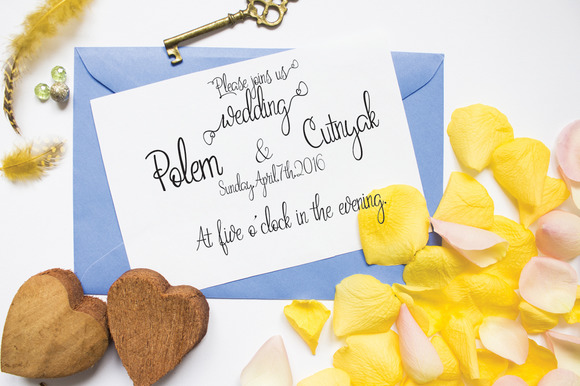 Please joins us
wedding
Polem & Cutnyak
Sunday, April 7th, 2016
At five o'clock in the evening.